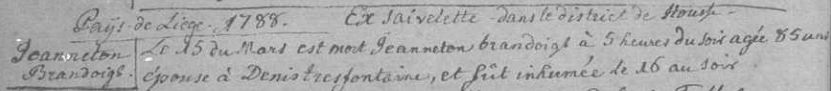 Païs de Liege. 1788. Ex Saivelette dans le district de Housse.
Jeanneton Le 15 du Mars est mort Jeanneton brandoigt à 5 heures du soir agée 85 ans
Brandoigt. épouse à Denis tresfontaine, et fût inhumée le 16 au soir